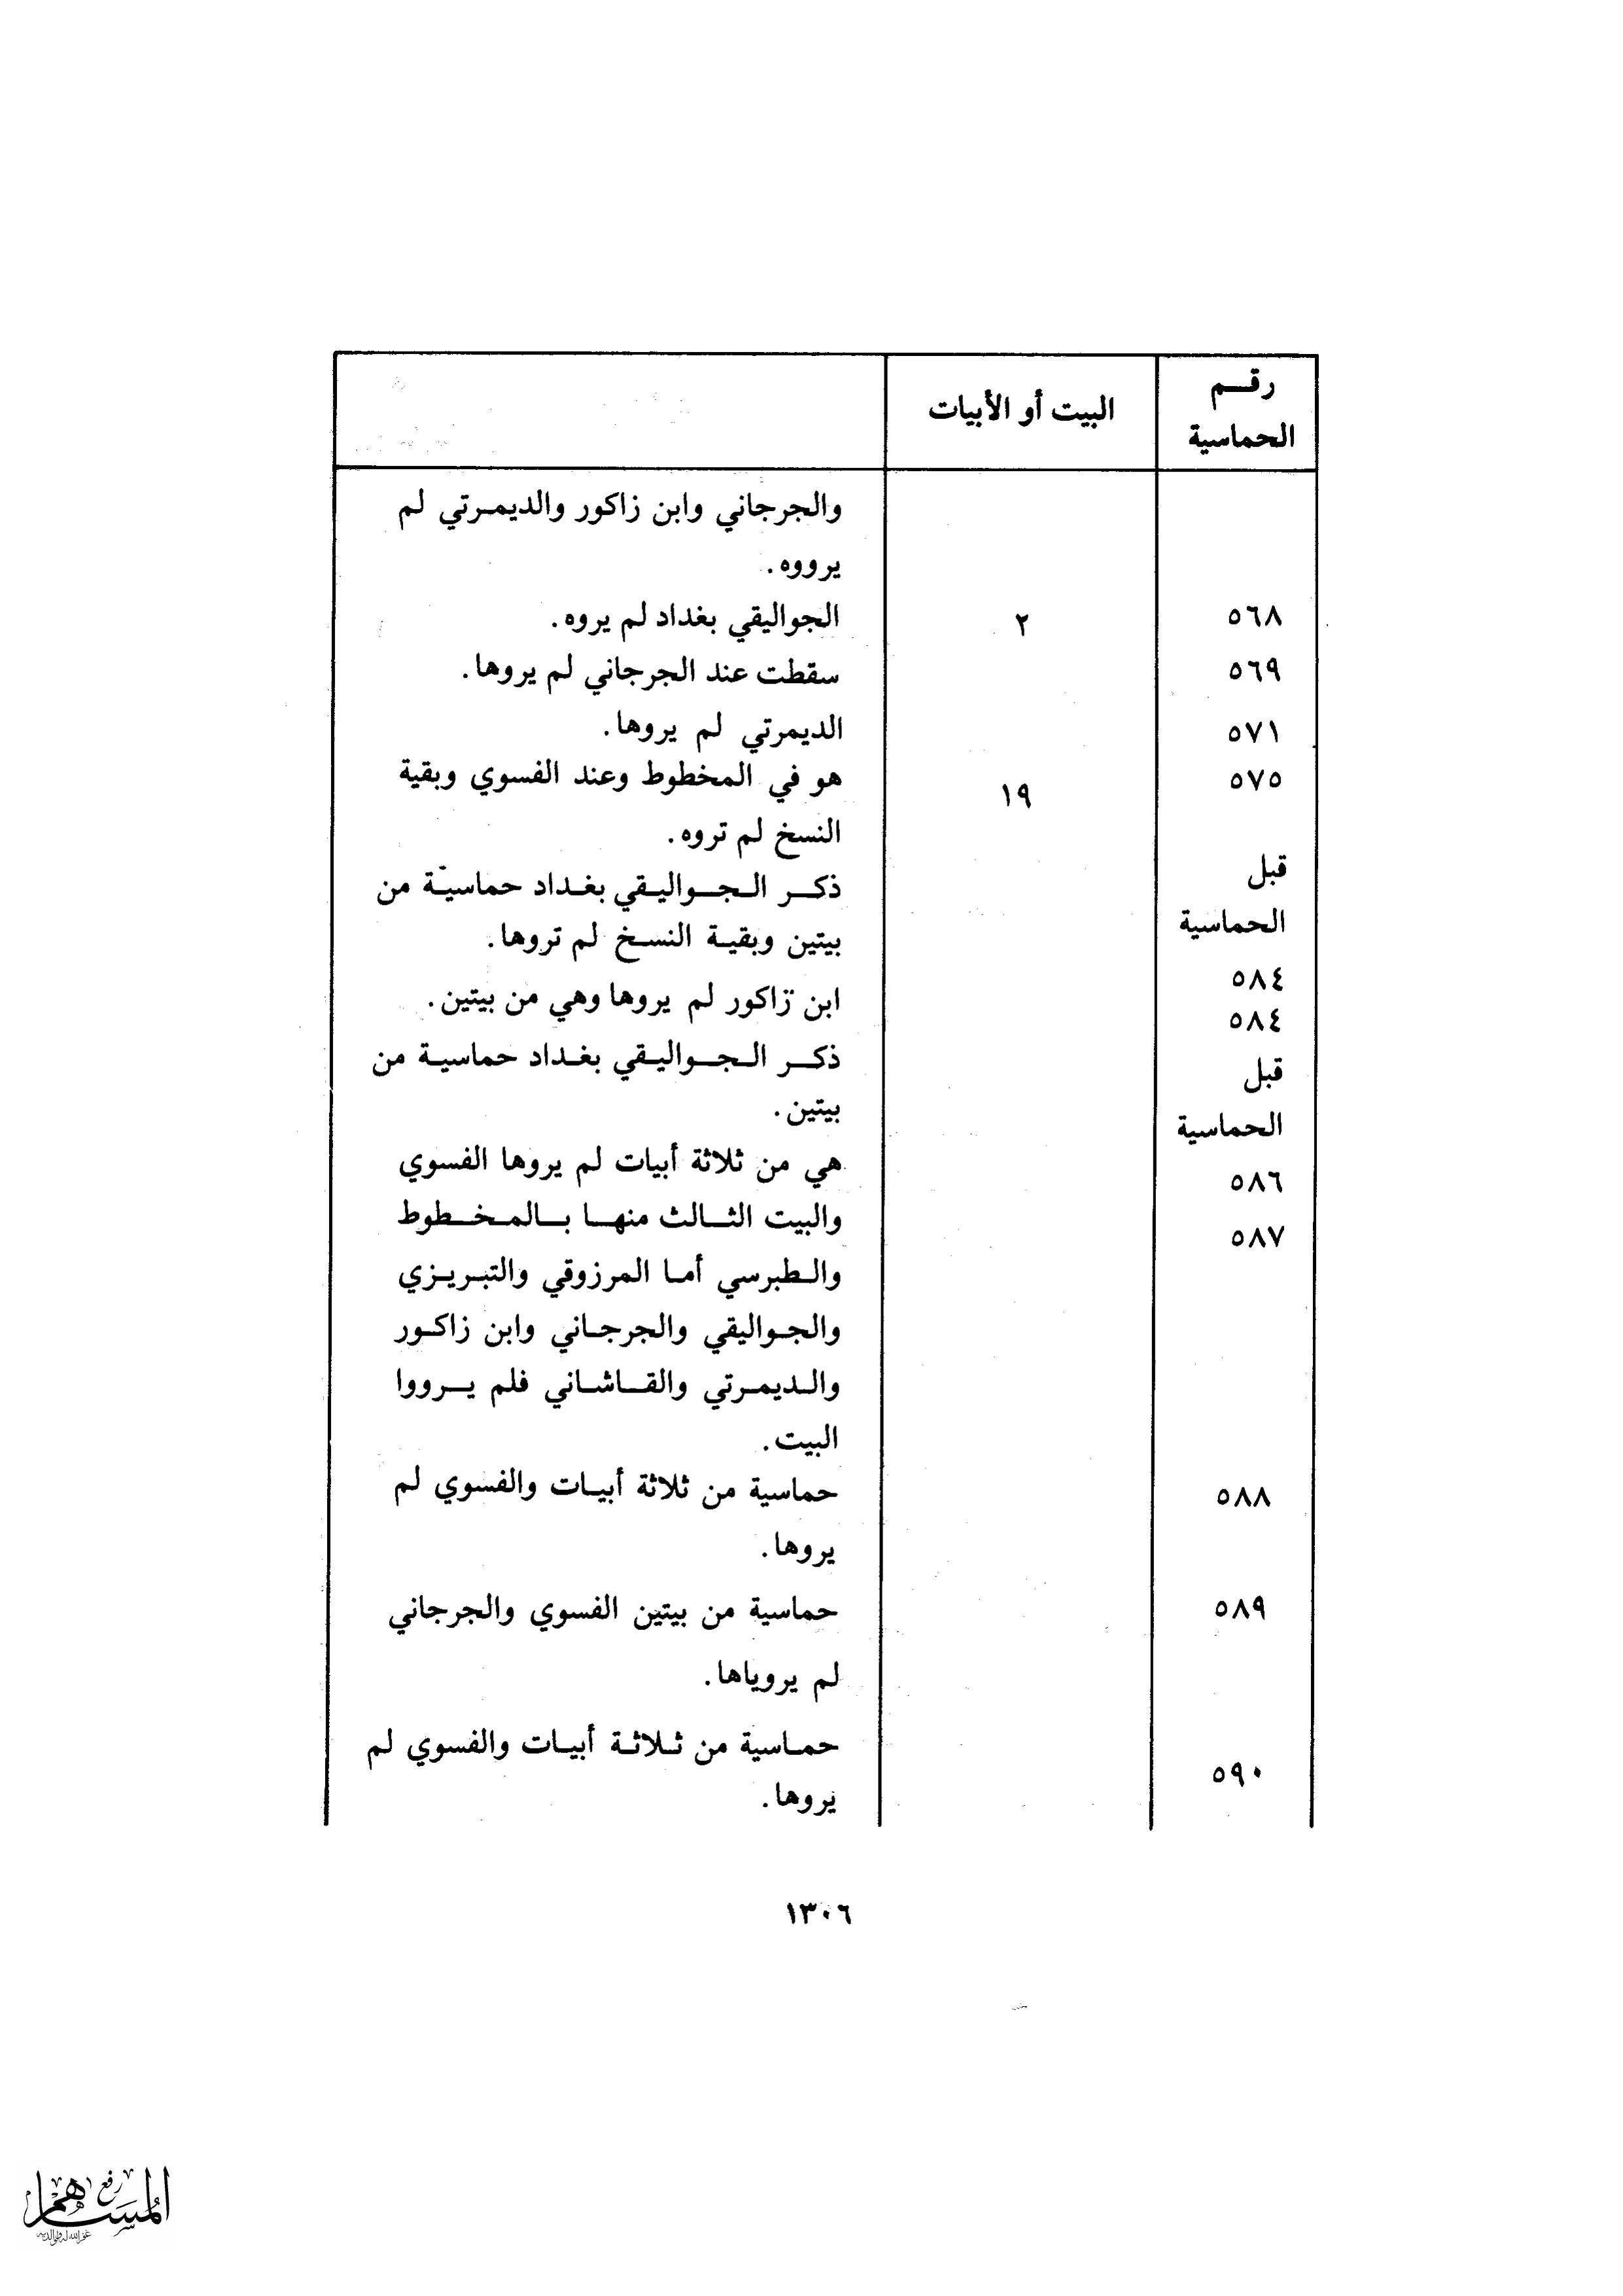 رقـم
الحماسية
البيت أو الأبيات
والجرجاني وابن زاكور والديمرتي لم
يرووه.
٥٦٨ ٢ الجواليقي بغداد لم يروه.
٥٦٩ سقطت عند الجرجاني لم يروها.
٥٧١ الديمرتي لم يروها.
٥٧٥ ١٩ هو في المخطوط وعند الفسوي وبقية
النسخ لم تروه.
قبل ذكر الجواليقي بغداد حماسيّة من
الحماسية بيتين وبقية النسخ لم تروها.
٥٨٤
٥٨٤ ابن زاكور لم يروها وهي من بيتين.
قبل ذكر الجواليقي بغداد حماسية من
الحماسية بيتين.
٥٨٦
هي من ثلاثة أبيات لم يروها الفسوي
٥٨٧ والبيت الثالث منها بالمخطوط
والطبرسي أما المرزوقي والتبريزي
والجواليقي والجرجاني وابن زاكور
والديمرتي والقاشاني فلم يرووا
البيت.
٥٨٨ حماسية من ثلاثة أبيات والفسوي لم
يروها.
٥٨٩ حماسية من بيتين الفسوي والجرجاني
لم يروياها.
٥٩٠ حماسية من ثلاثة أبيات والفسوي لم
يروها.
١٣٠٦
رفع
المساهم
غفر الله له ولوالديه